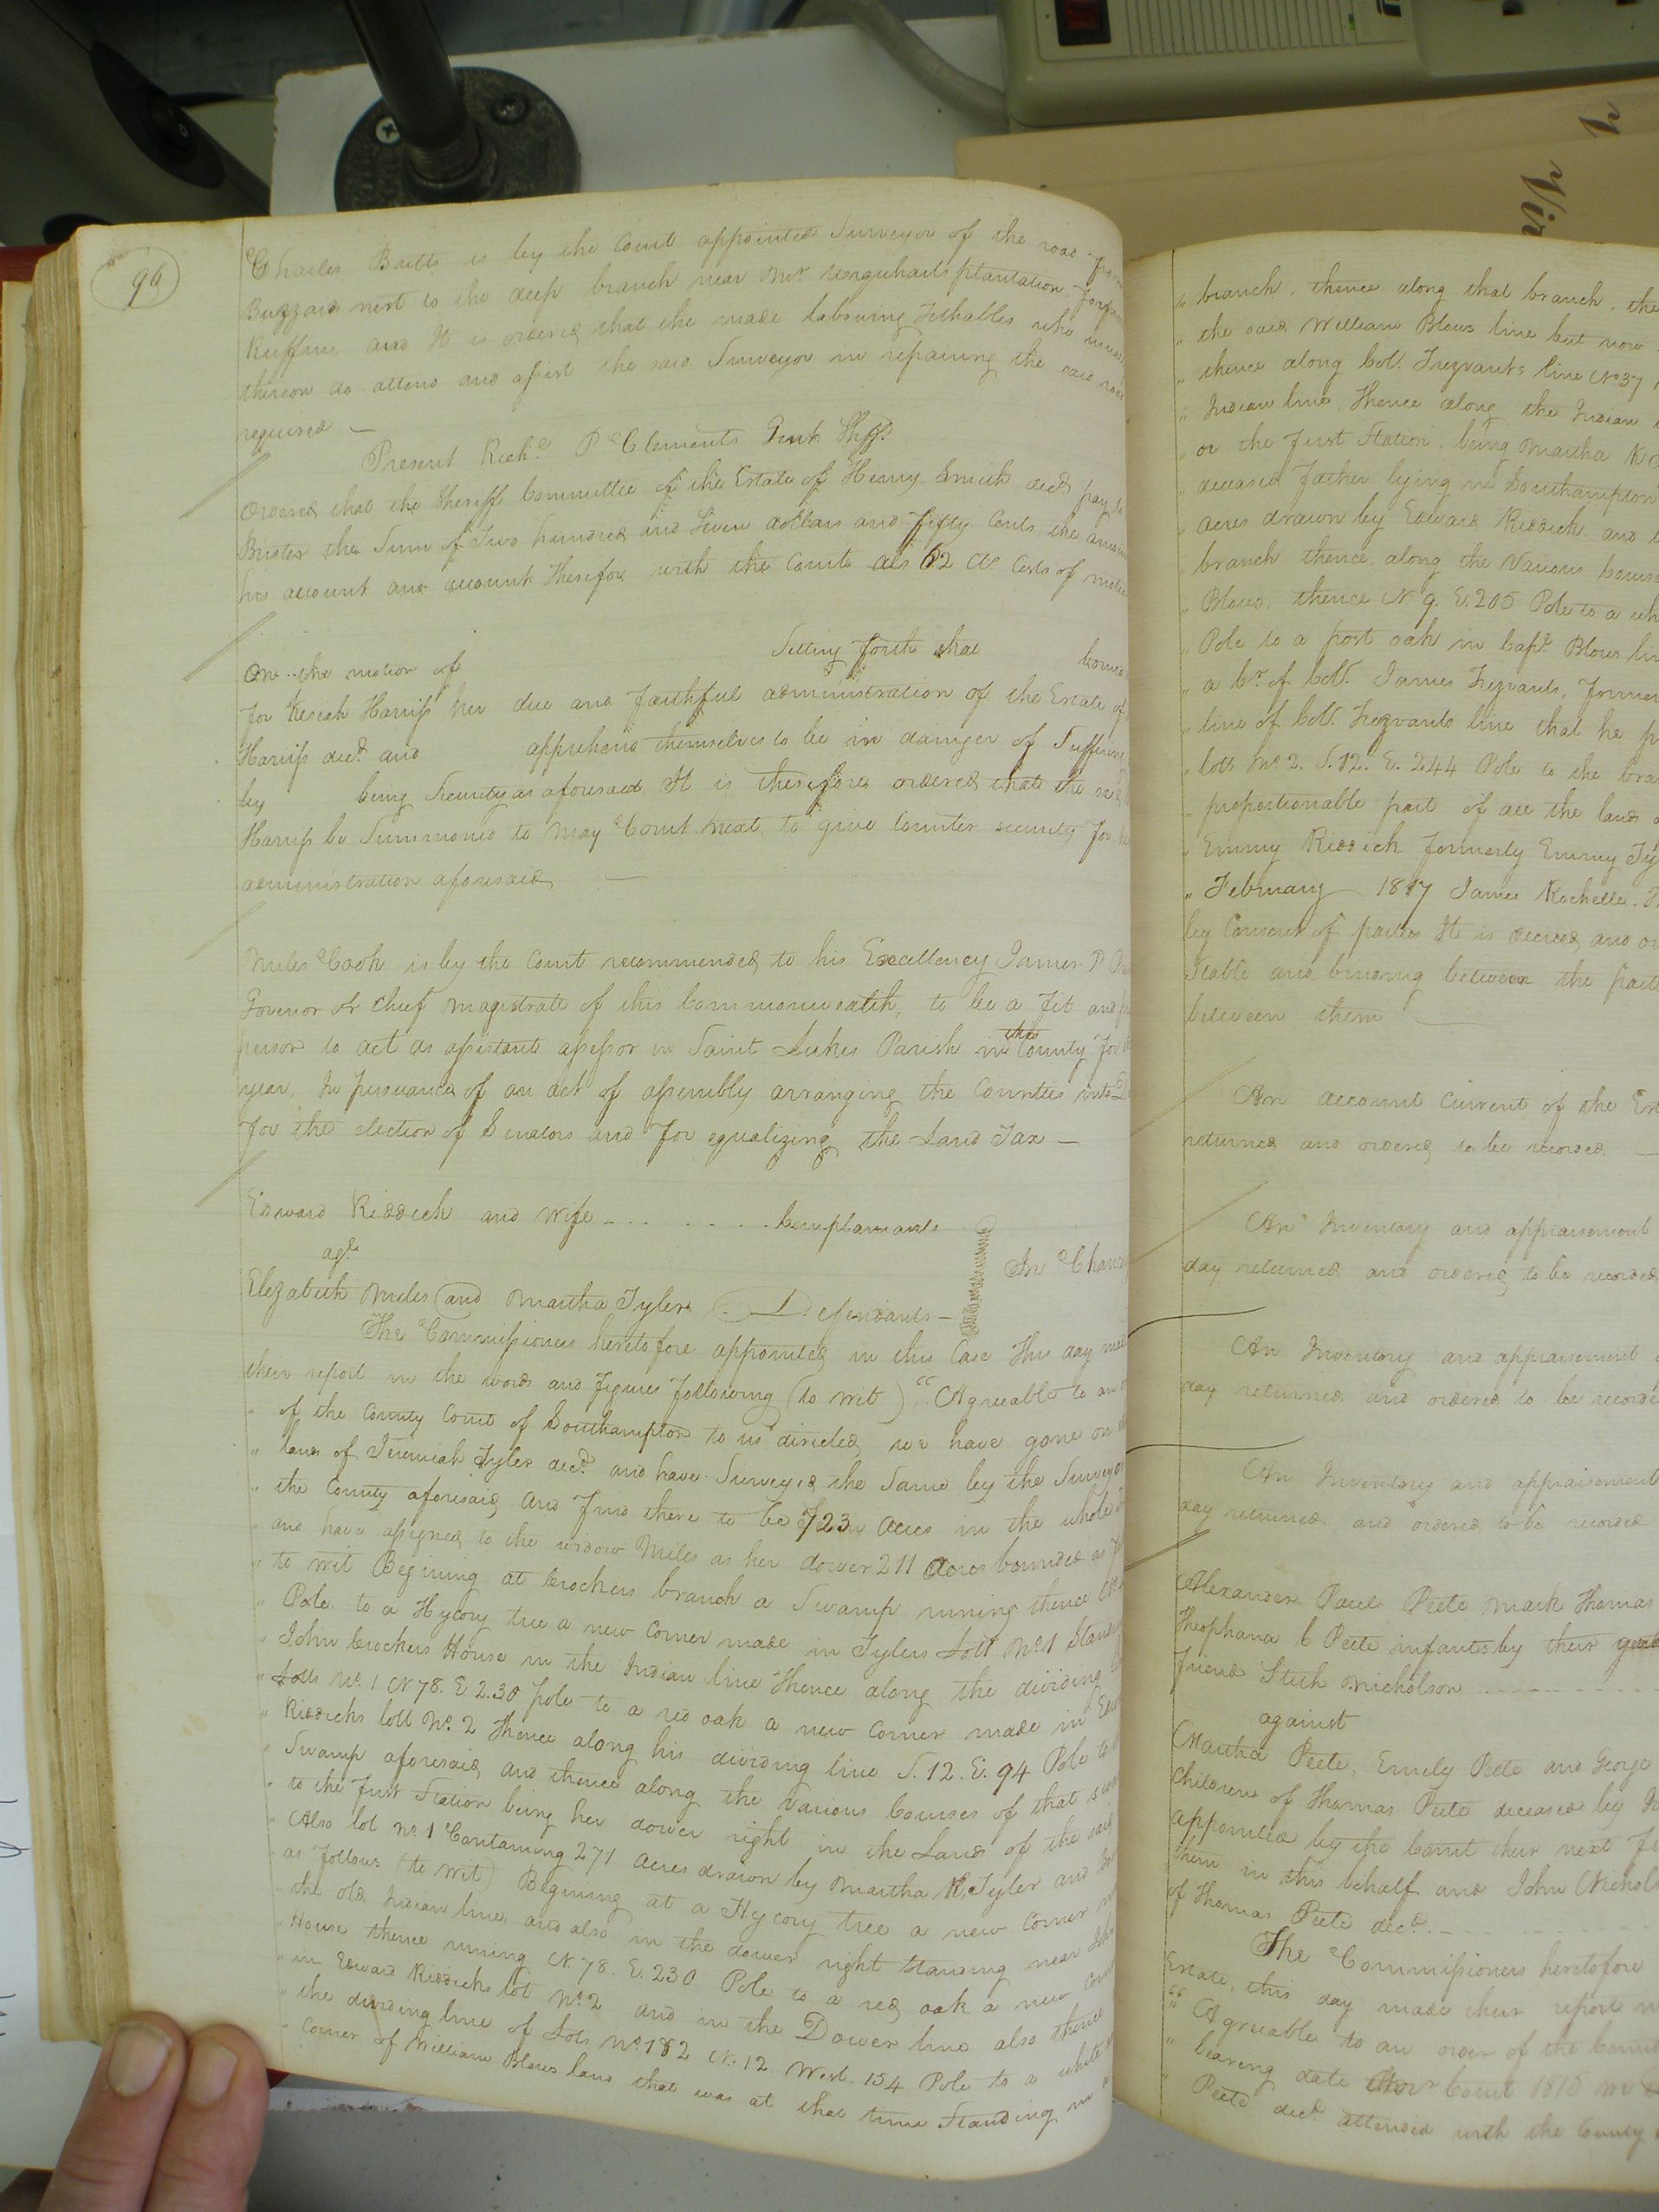 96
Charles Butts is by the Court appointed Surveyor of the road from
Buzzard nest to the deep branch near Mr. Urquharts plantation,
Ruffins, and It is ordered that the male labouring Tithables who
thereon do attend and assist the said Surveyor in repairing the said road
required —
Present Richd. P Clements Gent Shff.
Ordered that the Sheriff Committee of the Estate of Henry Smith decd. pay to
Brister the Sum of Two hundred and Seven dollars and fifty Cents, the
his account and account therefor with the Court als 62 Cts Costs of
On the motion of Setting forth that bound
for Keziah Harriss her due and faithful administration of the Estate of
Harriss decd. and apprehend themselves to be in danger of Suffering
by being Security as aforesaid It is therefore ordered that the said
Harriss be Summoned to May Court next, to give Counter security for her
administration aforesaid —
Miles Cook is by the Court recommended to his Excellency James P
Govenor or chief magistrate of this Commonwealth, to be a fit and
person to act as assistant assessor in Saint Lukes Parish in the County for
year, In pursuance of an act of assembly arranging the Counties into
for the election of Senators and for equalizing the Land Tax —
Edward Riddick and wife - - - - - - Complainants
agt.
In
Elezabeth Miles and Martha Tyler Defendants —
The Commissioners heretofore appointed in this Case This day
their report in the words and figures following (to wit) "Agreeable to an
" of the County Court of Southampton to us directed, we have gone on
" land of Jeremiah Tyler decd. and have Surveyed the Same by the Surveyor
" the County aforesaid and find there to be 723 Acres in the whole
" and have assigned to the widow Miles as her dower 211 Acres bounded as
" to wit Begining at Crockers branch a Swamp runing thence
" Pole to a Hycory tree a new Corner made in Tylers Lott No. 1 Standing
" John Crockers House in the Indian line Thence along the dividing
" Lotts No. 1 N 78. E 2.30 pole to a red oak a new Corner made in
" Riddicks lott No. 2 Thence along his dividing line S. 12. E. 94 Pole to
" Swamp aforesaid and thence along the Various Courses of that
" to the first Station being her dower right in the Land of the said
" Also lot No. 1 Containing 271 Acres drawn by Martha R. Tyler and
" as follows (to wit) Begining at a Hycory tree a new Corner
" the old Indian line, and also in the dower right Standing near
" House thence runing N. 78. E. 230 Pole to a red oak a new
" in Edward Riddicks lot No. 2 and in the Dower line also thence
" the dividing line of Lots No. 1 & 2 N. 12 West. 154 Pole to a white
" Corner of William Blows land that was at that time Standing in
" branch, thence along that branch, the
" the said William Blows line but now
" thence along Col. Trezvants line No. 37
" Indian line, Thence along the Indian
" or the first Station, being Martha
" deceased Father lying in Southampton
" acres drawn by Edward Riddick, and
" branch thence, along the Various
" Blows, thence N. 9. E. 205 Pole to a
" Pole to a post oak in Capt. Blows
" a Cr. of Col. James Trezvants,
" line of Col. Trezvants line that he
" lotts No. 2. S. 12. E. 244 Pole to the
" proportionable part of all the land
" Emmy Riddick formerly Emmy
" February 1817 James Rochelle.
by Consent of parties It is decreed and
Stable and binding between the
between them —
An account Current of the
returned and ordered to be recorded —
An Inventory and appraisement
day returned and ordered to be recorded
An Inventory and appraisement
day returned and ordered to be
An Inventory and appraisement
day returned and ordered to be recorded
Alexander Paul Peete Mark Thomas
Theophana C Peete infants by their
friend Nicholson - - - - -
against
Martha Peete, Emily Peete and George
Children of Thomas Peete deceased by
appointed by the Court their next
them in this behalf and John
of Thomas Peete decd. - - - - -
The Commissioners heretofore
Estate, this day made their report
" Agreeable to an order of the
" bearing date Court 1816
" Peete decd. attended with the County